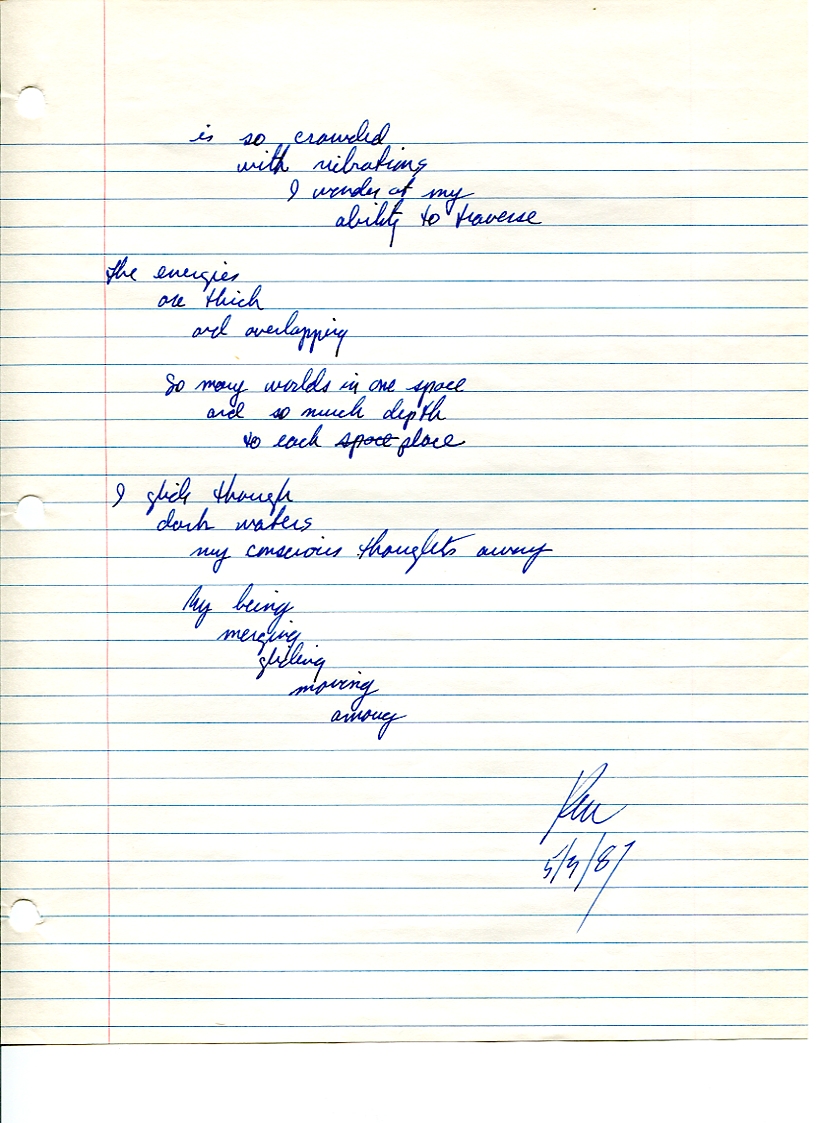 is so crowded
with vibrations
I wonder at my
ability to traverse
the energies
are thick
and overlapping
So many worlds in one space
and so much depth
to each space place
I glide through
dark waters
my conscious thoughts away
My being
merging
gliding
moving
among
Ken
5/3/87